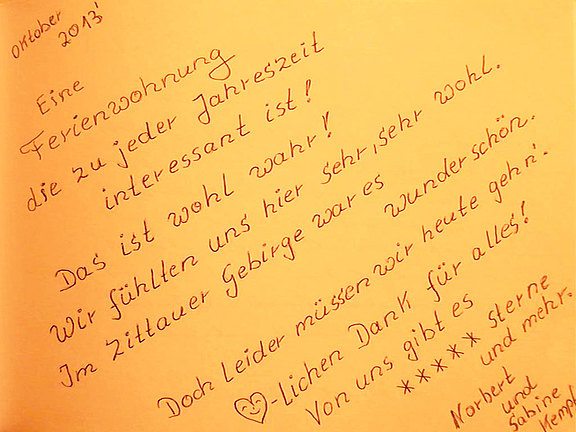 Oktober
2013'
Eine
Ferienwohnung
die zu jeder Jahreszeit
interessant ist!
Das ist wohl wahr!
Wir fühlten uns hier sehr, sehr wohl.
Im Zittauer Gebirge war es wunderschön.
Doch leider müssen wir heute gehn'.
♡-lichen Dank für alles!
Von uns gibt es
***** Sterne
und mehr.
Norbert
und
Sabine